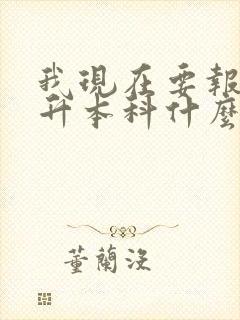 我現在要報
升本科什麼
董蘭沒